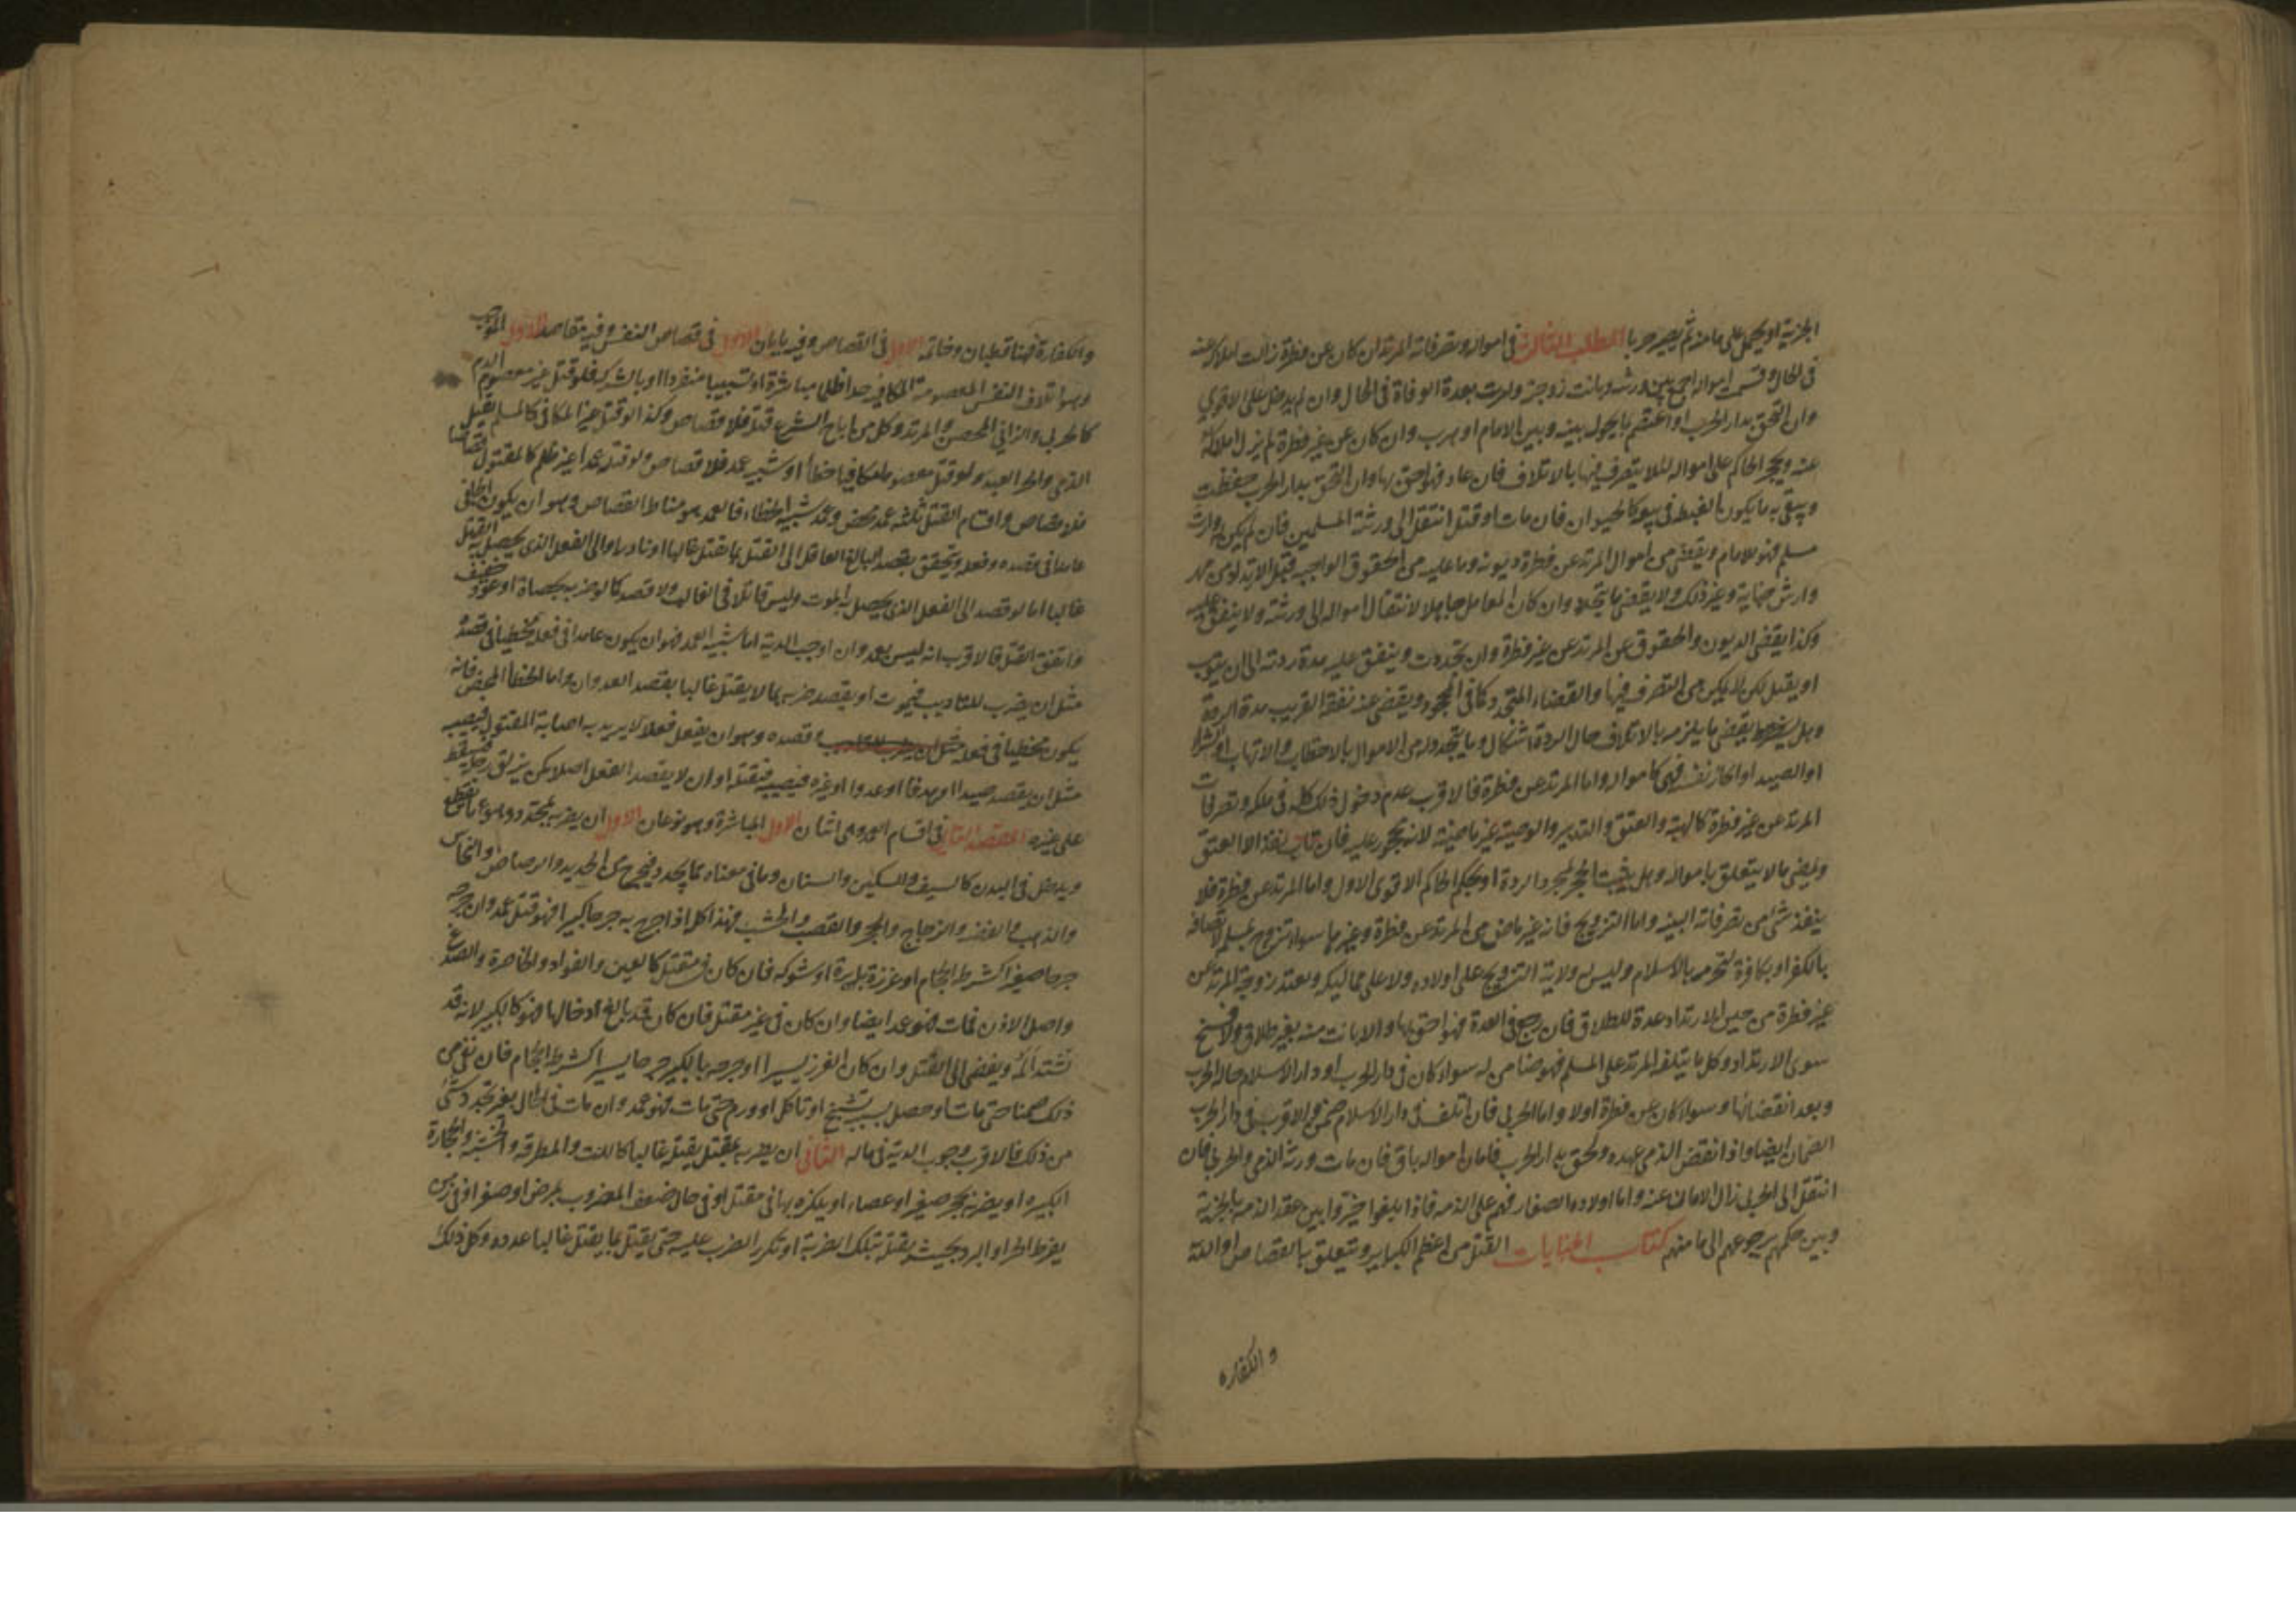 الجزية او يحمل على مامنه ثم يصير حربيا المطلب الثالث في امواله وتصرفاته المرتد ان كان عن فطرة زالت املاكه عنه
في الحال وقسم امواله اجمع بين ورثته وبانت زوجته وامرت بعدة الوفاة في الحال وان لم يدخل على الاقوى
وان التحق بدار الحرب او اعتصم بما يحول بينه وبين الامام او هرب وان كان عن غير فطرة لم يزل املاكه
عنه ويحجر الحاكم على امواله لئلا يتصرف فيها بالاتلاف فان عاد فهو احق بها وان التحق بدار الحرب حفظت
ويبيع ما يكون الغبطة في بيعه كالحيوان فان مات او قتل انتقل الى ورثته المسلمين فان لم يكن له وارث
مسلم فهو للامام ويقضى من اموال المرتد عن فطرة ديونه وما عليه من الحقوق الواجبة قبل الارتداد من مهر
وارش جناية وغير ذلك ولا يقضى ما يتجدد وان كان المعامل جاهلا لانتقال امواله الى ورثته ولا ينفق عليه
وكذا يقضى الديون والحقوق عن المرتد عن غير فطرة وان تجددت وينفق عليه مدة ردته الى ان يتوب
او يقتل لكن لا يمكن من التصرف فيها والقضاء المتجدد كما في المحجور ويقضى عنه نفقة القريب مدة الردة
وهل يقضى ما يلزمه بالاتلاف حال الردة اشكال وما يتجدد له من الاموال بالاحتطاب والاتهاب او الشراء
او الصيد او ايجار نفسه فهي كامواله واما المرتد عن فطرة فالاقرب عدم دخول ذلك كله في ملكه وتصرفات
المرتد عن غير فطرة كالهبة والعتق والتدبير والوصية غير ماضية لانه محجور عليه فان تاب نفذ الا العتق
ويمضي ما لا يتعلق بامواله وهل يثبت الحجر بمجرد الردة او بحكم الحاكم الاقوى الاول واما المرتد عن فطرة فلا
ينفذ شئ من تصرفاته البتة واما التزويج فانه غير ماض من المرتد عن فطرة وغيرها سواء تزوج بمسلمة لاتصافه
بالكفر او بكافرة لتحرمه بالاسلام وليس له ولاية التزويج على اولاده ولا على مماليكه وتعتد زوجة المرتد عن
غير فطرة من حين الارتداد عدة للطلاق فان رجع في العدة فهو احق بها والا بانت منه بغير طلاق ولا فسخ
سوى الارتداد وكل ما يتلفه المرتد على المسلم فهو ضامن له سواء كان في دار الحرب او دار الاسلام حالة الحرب
وبعد انقضائها وسواء كان عن فطرة او لا واما الحربي فان اتلف في دار الاسلام ضمن والاقرب في دار الحرب
الضمان ايضا واذا نقض الذمي عهده ولحق بدار الحرب فامان امواله باق فان مات ورثه الذمي والحربي فان
انتقل الى الحربي زال الامان عنه واما اولاده الصغار فهم على الذمة فاذا بلغوا خيروا بين عقد الذمة بالجزية
وبين حكمهم برجوعهم الى مامنهم كتاب الجنايات القتل من اعظم الكباير ويتعلق به القصاص او الدية
والكفاره
والكفارة فهنا قطبان وخاتمه الاول في القصاص وفيه بابان الاول في قصاص النفس وفيه مقاصد الاول الموجب
وهو اتلاف النفس المعصومة المكافية عمدا ظلما مباشرة او تسبيبا منفردا او بالشركة فلو قتل غير معصوم الدم
كالحربي والزاني المحصن والمرتد وكل من اباح الشرع قتله فلا قصاص وكذا لو قتل غير المكافي كالمسلم يقتل
الذمي والحر العبد ولو قتل معصوما مكافيا خطأ او شبيه عمد فلا قصاص ولو قتله عمدا غير ظلم كالمقتول قصاصا
فلا قصاص واقسام القتل ثلثة عمد محض وعمد شبيه الخطاء فالعمد هو مناط القصاص وهو ان يكون الجاني
عامدا في قصده وفعله ويتحقق بقصد البالغ العاقل الى القتل بما يقتل غالبا او نادرا او الى الفعل الذي يحصل به القتل
غالبا اما لو قصد الى الفعل الذي يحصل به الموت وليس قاتلا في الغالب ولا قصد كما لو ضربه بحصاة او عود خفيف
فاتفق القتل فالاقرب انه ليس بعمد وان اوجب الدية اما شبيه العمد فهو ان يكون عامدا في فعله مخطيا في قصده
مثل ان يضرب للتاديب فيموت او يقصد ضربه بما لا يقتل غالبا بقصد العدوان واما الخطأ المحض فانه
يكون مخطيا في فعله وقصده وهو ان يفعل فعلا لا يريد به اصابة المقتول فيصيبه
مثل ان يقصد صيدا او هدفا او عدوا او غيره فيصيبه فيقتله او ان لا يقصد الفعل اصلا كمن يزلق رجله فيسقط
على غيره المقصد الثاني في اقسام العمد وهي اثنان الاول المباشرة وهو نوعان الاول ان يضربه بمحدد وهو ما يقطع
ويدخل في البدن كالسيف والسكين والسنان وما في معناه مما يحدد فيجرح من الحديد والرصاص والنحاس
والذهب والفضة والزجاج والحجر والقصب والخشب فهذا كله اذا جرح به جرحا كبيرا فهو قتل عمد وان جرحه
جرحا صغيرا كشرطة الحجام او غرزه بابرة او شوكه فان كان في مقتل كالعين والفؤاد والخاصرة والصدغ
واصل الاذن فمات فهو عمد ايضا وان كان في غير مقتل فان كان قد بالغ في ادخالها فهو كالكبير لانه قد
تشتد المه ويفضي الى القتل وان كان الغرز يسيرا او جرحه بالكبير جرحا يسيرا كشرطة الحجام فان بقي من
ذلك ضمنا حتى مات او حصل بسببه تشنج او تاكل او ورم حتى مات فهو عمد وان مات في الحال بغير تجدد شئ
من ذلك فالاقرب وجوب الدية في ماله الثاني ان يضربه بمثقل يقتل غالبا كاللت والمطرقه والخشبة والحجارة
الكبيره او يضربه بحجر صغير او عصاء او يلكزه بها في مقتل او في حال ضعف المضروب بمرض او صغر او في زمن
يفرط الحر او البرد بحيث يقتله بتلك الضربة او تكرر الضرب عليه حتى يقتله بما يقتل غالبا عدده وكل ذلك